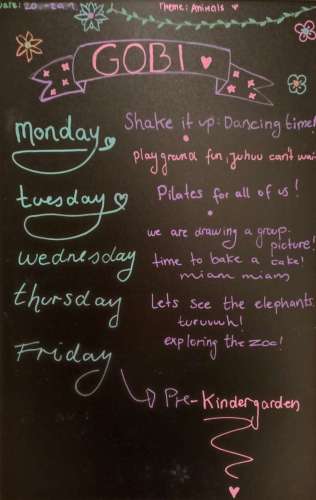 Theme: Animals
GOBI
monday
Shake it up: Dancing time!
playground fun, juhuu can't wait
tuesday
Pilates for all of us!
we are drawing a group
picture!
wednesday
time to bake a cake!
miam miam
thursday
Lets see the elephants
turuuuh!
exploring the zoo!
Friday
Pre-Kindergarden